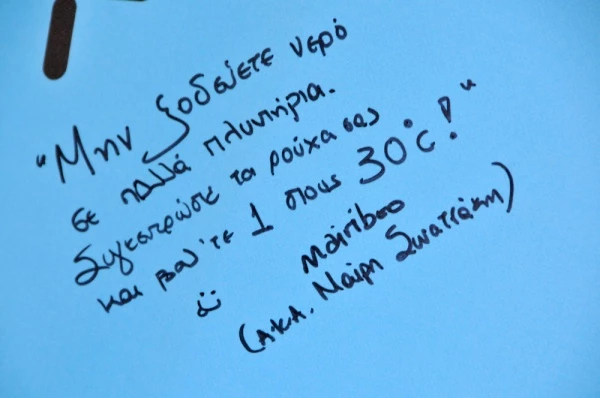 "Μην ξοδεύετε νερό
σε πολλά πλυντήρια.
Συγκεντρώστε τα ρούχα σας
και βάλ'τε 1 στους 30°C!"
(Α.Κ.Α. Μαίρη Συνατσάκη)